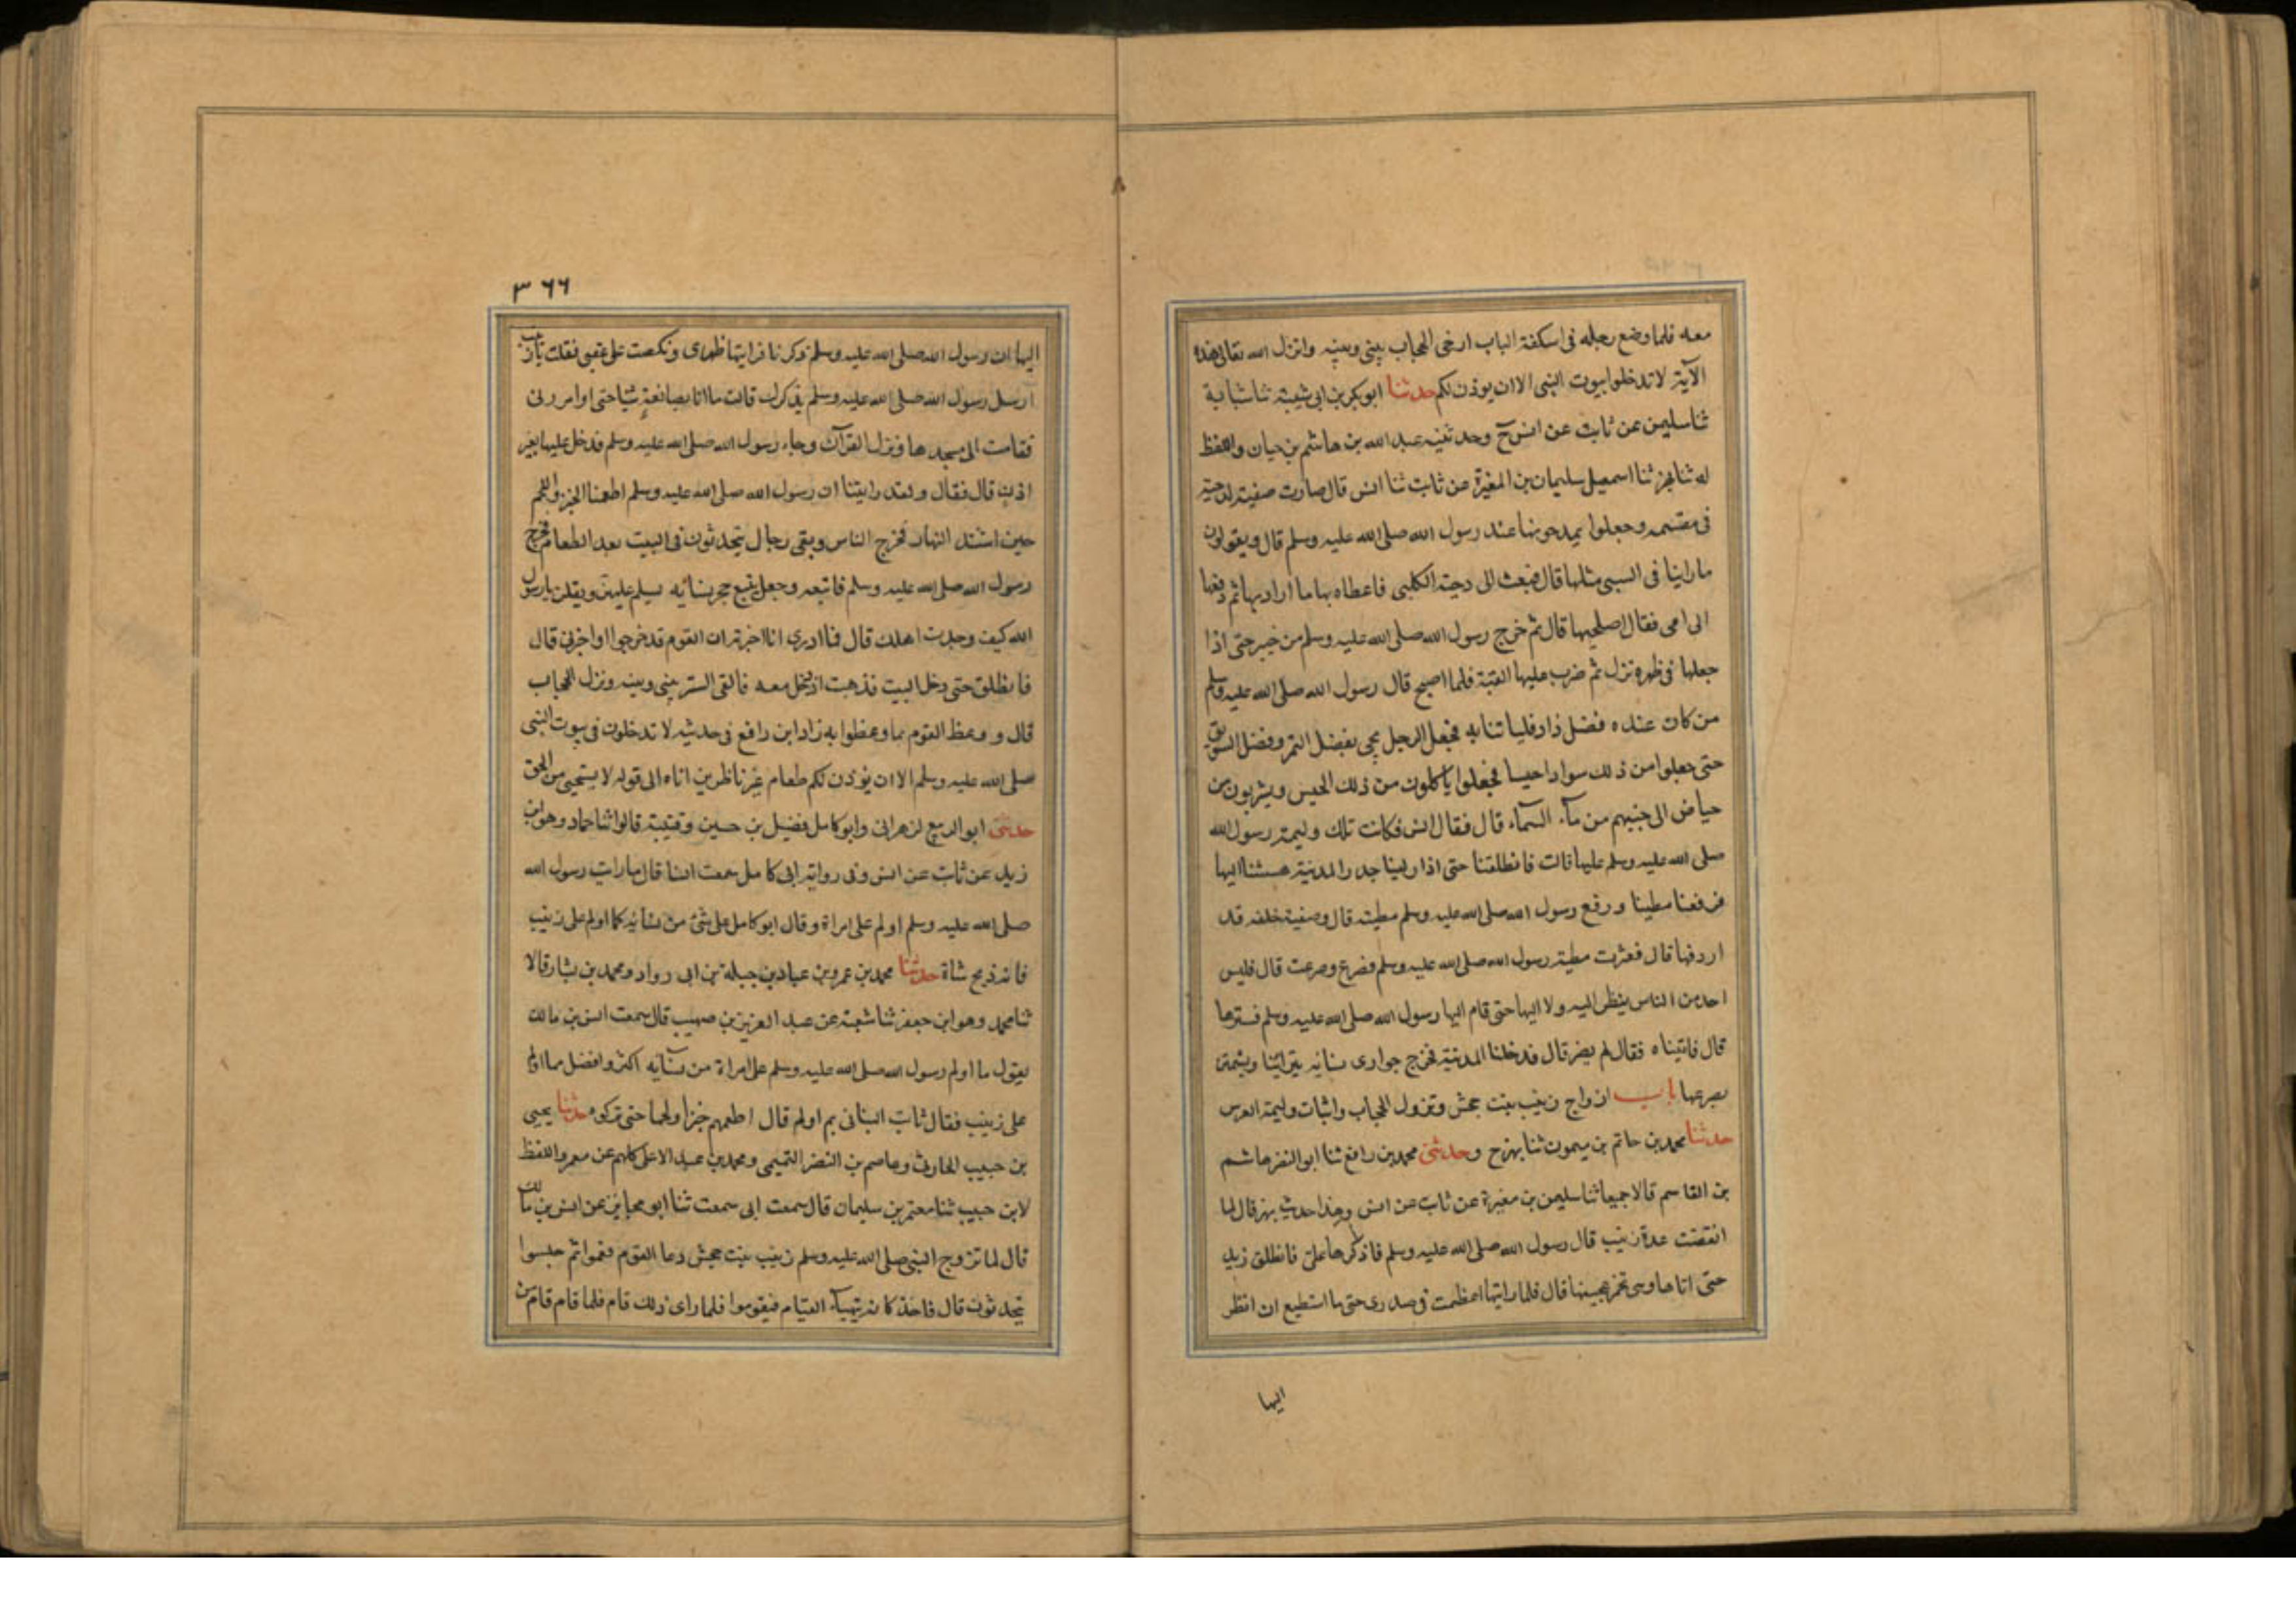 معه فلما وضع رجله فى اسكفة الباب ارخى الحجاب بينى وبينه وانزل الله تعالى هذه
الآية لا تدخلوا بيوت النبى الا ان يوذن لكم حدثنا ابو بكر بن ابى شيبة ثنا شبابة
ثنا سليمن عن ثابت عن انس ح وحدثنيه عبد الله بن هاشم بن حيان واللفظ
له ثنا بهز ثنا اسمعيل سليمان بن المغيرة عن ثابت ثنا انس قال صارت صفية لدحية
فى مقسمه وجعلوا يمدحونها عند رسول الله صلى الله عليه وسلم قال ويقولون
ما راينا فى السبى مثلها قال فبعث الى دحية الكلبى فاعطاه بها ما اراد بها ثم دفعها
الى امى فقال اصلحيها قال ثم خرج رسول الله صلى الله عليه وسلم من خيبر حتى اذا
جعلها فى ظهره نزل ثم ضرب عليها القبة فلما اصبح قال رسول الله صلى الله عليه وسلم
من كان عنده فضل زاد فلياتنا به فجعل الرجل يجى بفضل التمر وفضل السويق
حتى جعلوا من ذلك سوادا حيسا فجعلوا ياكلون من ذلك الحيس ويشربون من
حياض الى جنبهم من مآء السمآء قال فقال انس فكانت تلك وليمة رسول الله
صلى الله عليه وسلم عليها قالت فانطلقنا حتى اذا راينا جدر المدينة هششنا اليها
فرفعنا مطينا ورفع رسول الله صلى الله عليه وسلم مطيته قال وصفية خلفه قد
اردفها قال فعثرت مطية رسول الله صلى الله عليه وسلم فصرع وصرعت قال فليس
احد من الناس ينظر اليه ولا اليها حتى قام اليها رسول الله صلى الله عليه وسلم فسترها
قال فاتيناه فقال لم يضر قال فدخلنا المدينة فخرج جوارى نسائه يتراينها ويشمتن
بصرعها باب ازواج زينب بنت جحش ونزول الحجاب واثبات وليمة العرس
حدثنا محمد بن حاتم بن ميمون ثنا بهز ح وحدثنى محمد بن رافع ثنا ابو النضر هاشم
بن القاسم قالا جميعا ثنا سليمن بن مغيرة عن ثابت عن انس وهذا حديث بهز قال لما
انقضت عدة زينب قال رسول الله صلى الله عليه وسلم فاذكرها على فانطلق زيد
حتى اتاها وهى تخمر عجينها قال فلما رايتها عظمت فى صدرى حتى ما استطيع ان انظر
اليها
٣٦٦
اليها ان رسول الله صلى الله عليه وسلم ذكرنا فرايتها ظهرى ونكصت على عقبى فقلت يا زينب
ارسل رسول الله صلى الله عليه وسلم يذكرك قالت ما انا بصانعة شيا حتى اوامر ربى
فقامت الى مسجدها ونزل القرآن وجاء رسول الله صلى الله عليه وسلم فدخل عليها بغير
اذن قال فقال ولقد رايتنا ان رسول الله صلى الله عليه وسلم اطعمنا الخبز واللحم
حين اشتد النهار فخرج الناس وبقى رجال يتحدثون فى البيت بعد الطعام فخرج
رسول الله صلى الله عليه وسلم فاتبعه وجعل يتبع حجر نسائه يسلم عليهن ويقلن يا رسول
الله كيف وجدت اهلك قال فما ادرى انا اخبرته ان القوم قد خرجوا او اخبرنى قال
فانطلق حتى دخل البيت فذهبت ادخل معه فالقى الستر بينى وبينه ونزل الحجاب
قال و وعظ القوم بما وعظوا به زاد ابن رافع فى حديثه لا تدخلون فى بيوت النبى
صلى الله عليه وسلم الا ان يوذن لكم طعام غير ناظرين اناه الى قوله لا يستحيى من الحق
حدثنى ابو الربيع الزهرانى وابو كامل فضيل بن حسين وقتيبة قالوا ثنا حماد وهو ابن
زيد عن ثابت عن انس وفى رواية ابى كامل سمعت انسا قال ما رايت رسول الله
صلى الله عليه وسلم اولم على امراة وقال ابو كامل على شئ من نسائه كما اولم على زينب
فانه ذبح شاة حدثنا محمد بن عمرو بن عباد بن جبلة بن ابى رواد ومحمد بن بشار قالا
ثنا محمد وهو ابن جعفر ثنا شعبة عن عبد العزيز بن صهيب قال سمعت انس بن مالك
يقول ما اولم رسول الله صلى الله عليه وسلم على امراة من نسآيه اكثر وافضل مما اولم
على زينب فقال ثابت البنانى بم اولم قال اطعمهم خبزا ولحما حتى تركوه حدثنا يحيى
بن حبيب الحارثى وعاصم بن النضر التميمى ومحمد بن عبد الاعلى كلهم عن معمر واللفظ
لابن حبيب ثنا معتمر بن سليمان قال سمعت ابى سمعت ثنا ابو مجلز عن انس بن مالك
قال لما تزوج النبى صلى الله عليه وسلم زينب بنت جحش دعا القوم فطعموا ثم جلسوا
يتحدثون قال فاخذ كانه يتهيآء للقيام فيقوموا فلما راى ذلك قام فلما قام قام من